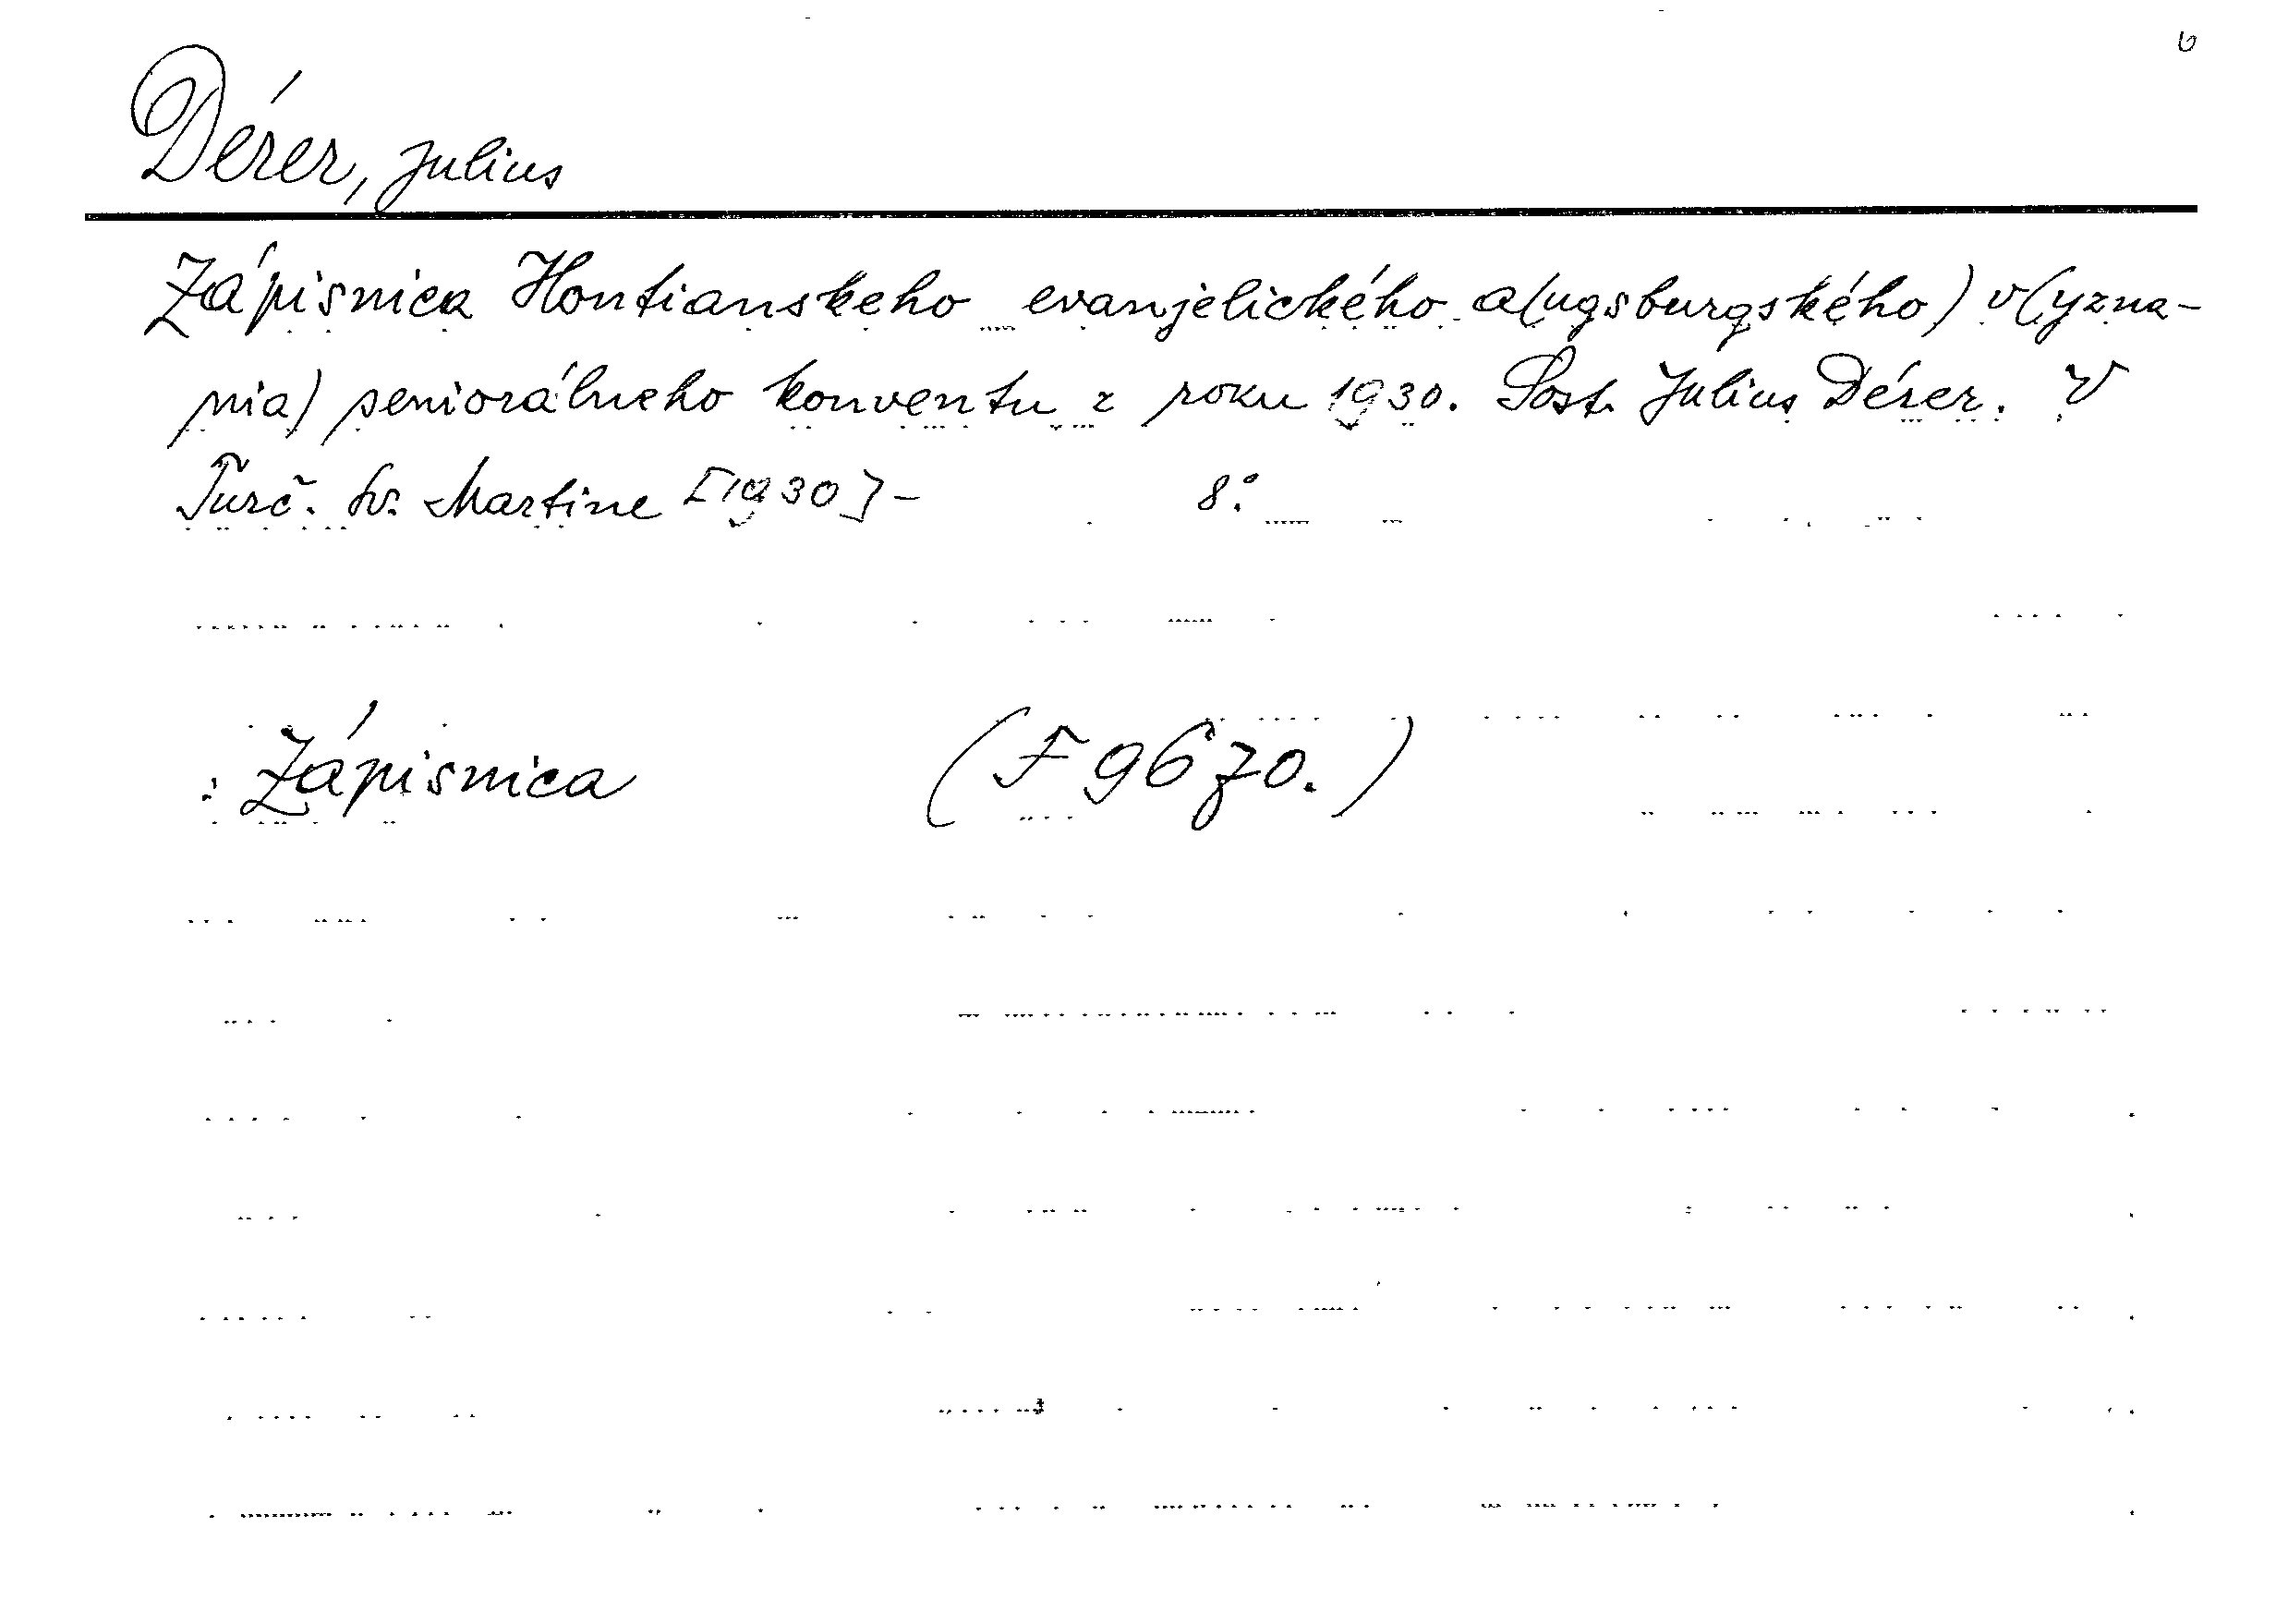 6
Dérer, Julius
Zápisnica Hontianskeho evanjelického a(ugsburgského) v(yzna-
nia) seniorálneho konventu z roku 1930. Sost. Julius Dérer. V
Turč. Sv. Martine [1930] - 8°.
: Zápisnica (F 9670.)